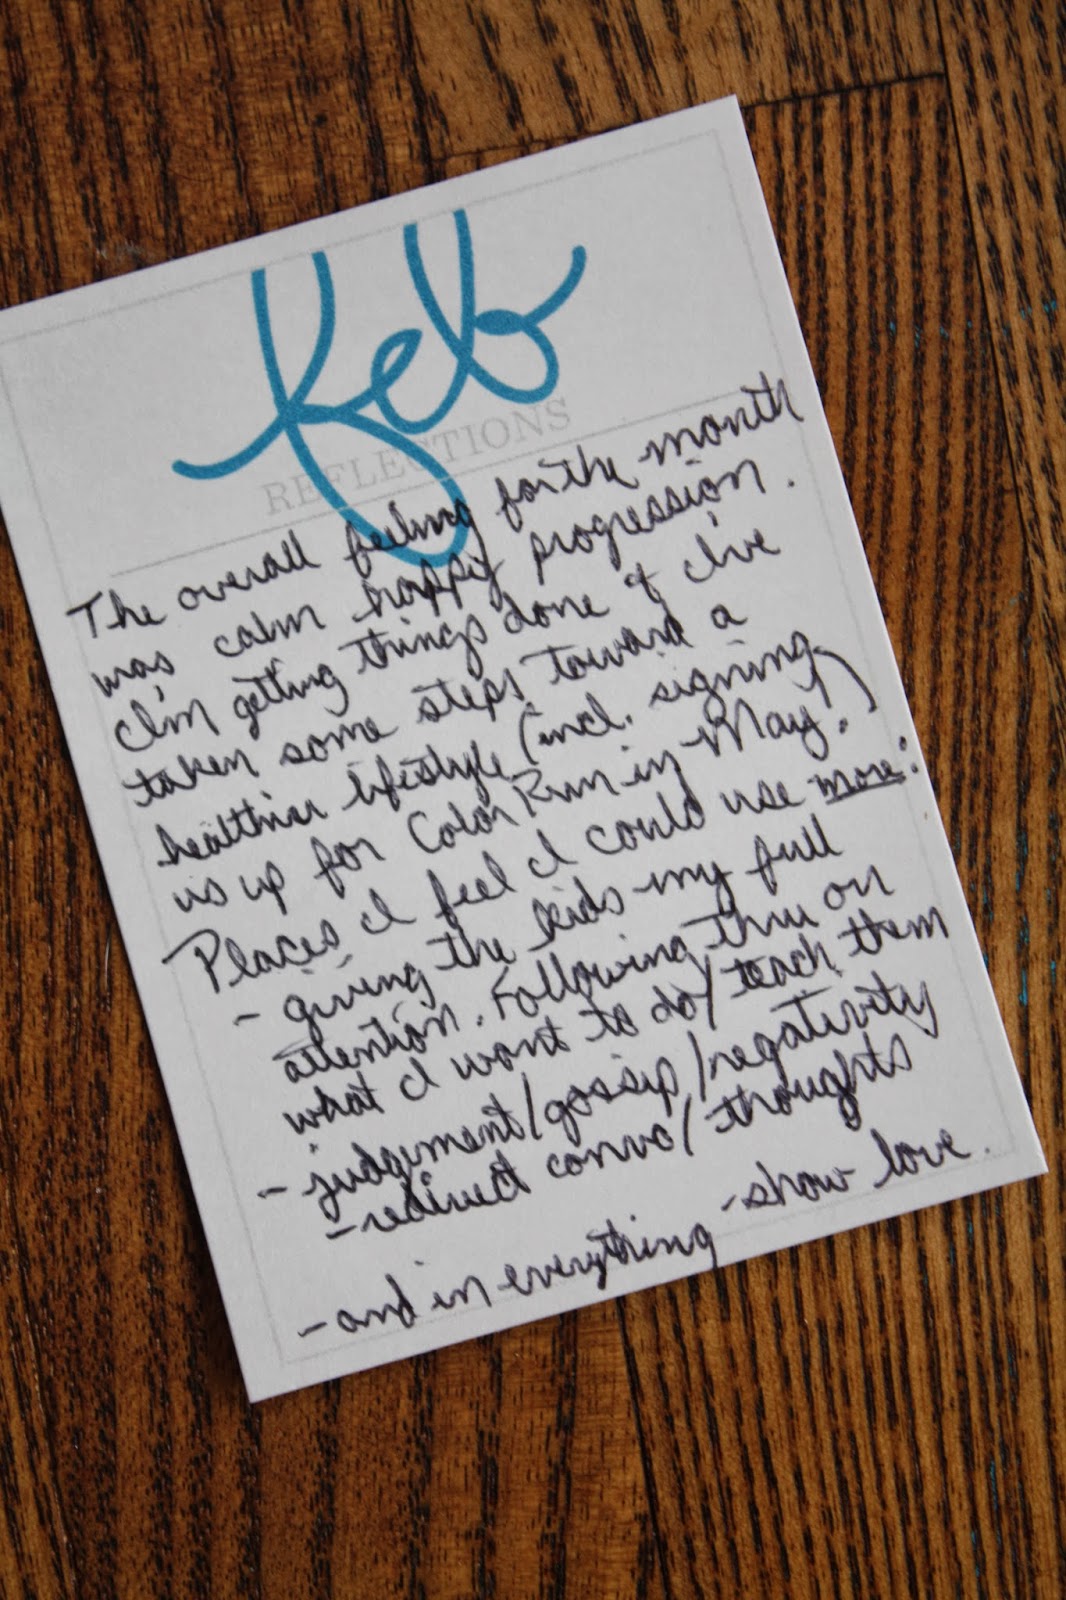 feb
REFLECTIONS
The overall feeling for the month
was calm happy progression.
I'm getting things done & I've
taken some steps toward a
healthier lifestyle (incl. signing
us up for Color Run in May.)
Places I feel I could use more:
- giving the kids my full
attention. Following thru on
what I want to do/teach them
- judgement/gossip/negativity
- redirect convo/thoughts
- and in everything - show love.